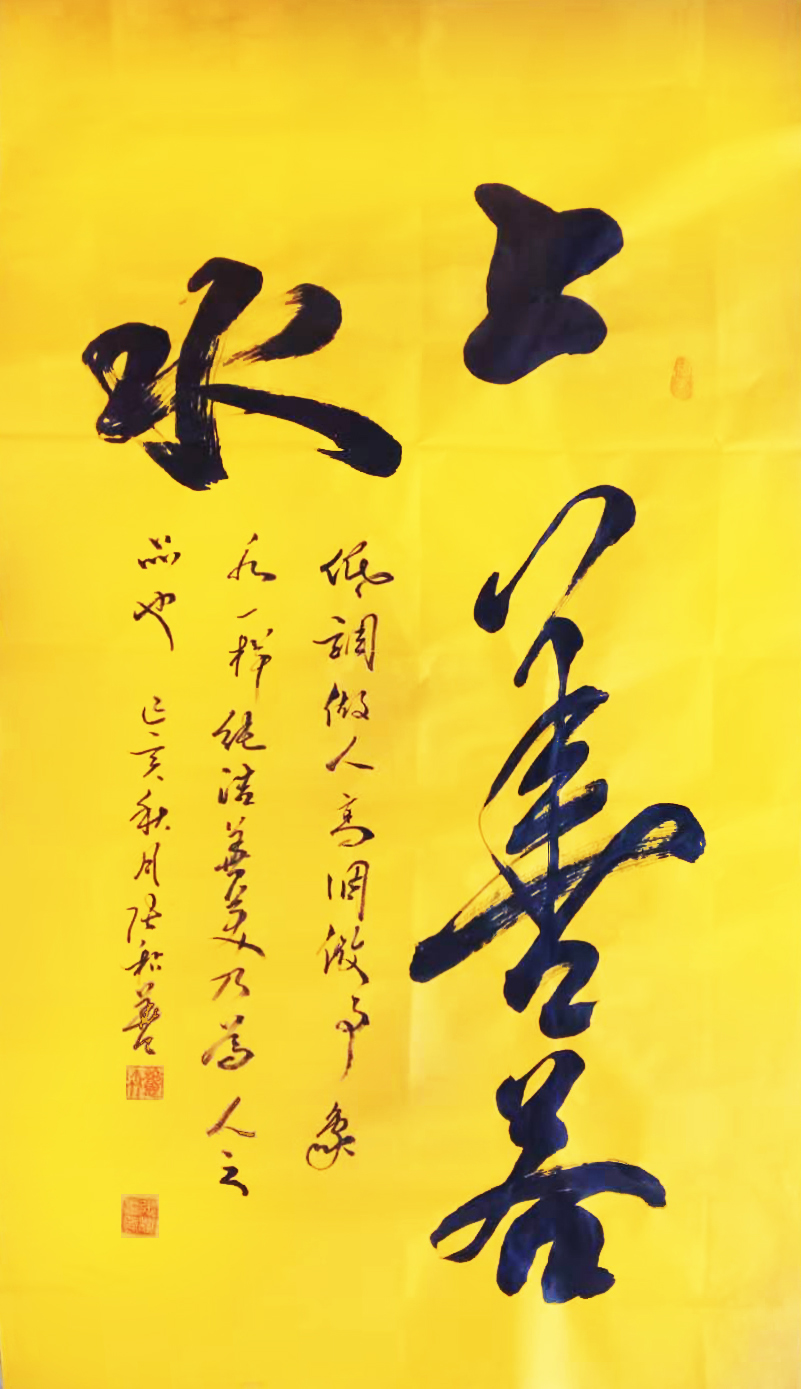 上善若
水
低調做人高调做事象
水一样純洁善美乃為人之
品也 己亥秋月張和善